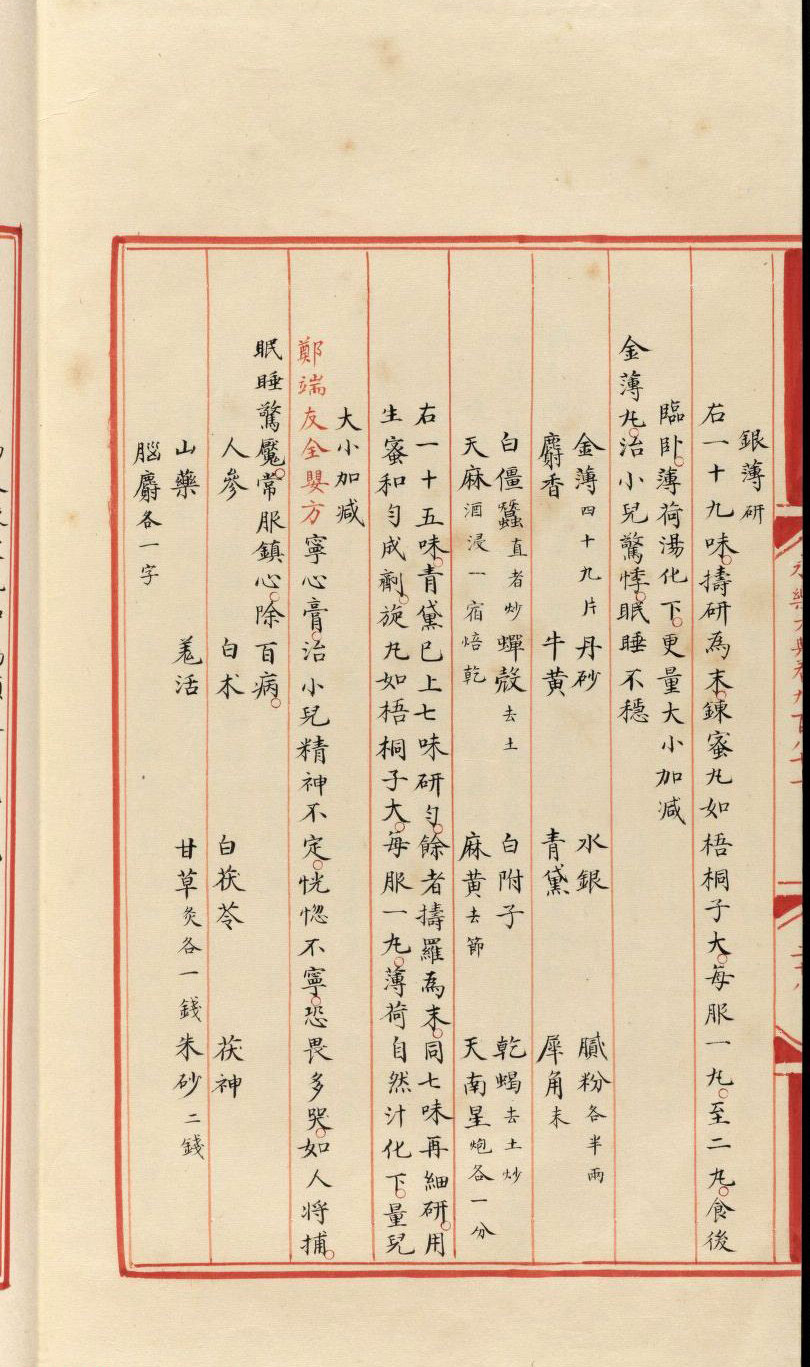 銀薄研
右一十九味。擣研為末。鍊蜜丸如梧桐子大。每服一丸。至二丸。食後
臨卧。薄荷湯化下。更量大小加減
金薄丸。治小兒驚悸。眠睡不穩
金薄四十九片 丹砂 水銀 膩粉各半兩
麝香 牛黃 青黛 犀角末
白僵蠶直者炒 蟬殼去土 白附子 乾蝎去土炒
天麻酒浸一宿焙乾 麻黃去節 天南星炮各一分
右一十五味。青黛已上七味研勻。餘者擣羅為末。同七味再細研。用
生蜜和勻成劑。旋丸如梧桐子大。每服一丸。薄荷自然汁化下。量兒
大小加減
鄭端友全嬰方 寧心膏。治小兒精神不定。恍惚不寧。恐畏多哭。如人將捕。
眠睡驚魘。常服鎮心。除百病。
人參 白朮 白茯苓 茯神
山藥 羗活 甘草炙各一錢 朱砂二錢
腦麝各一字